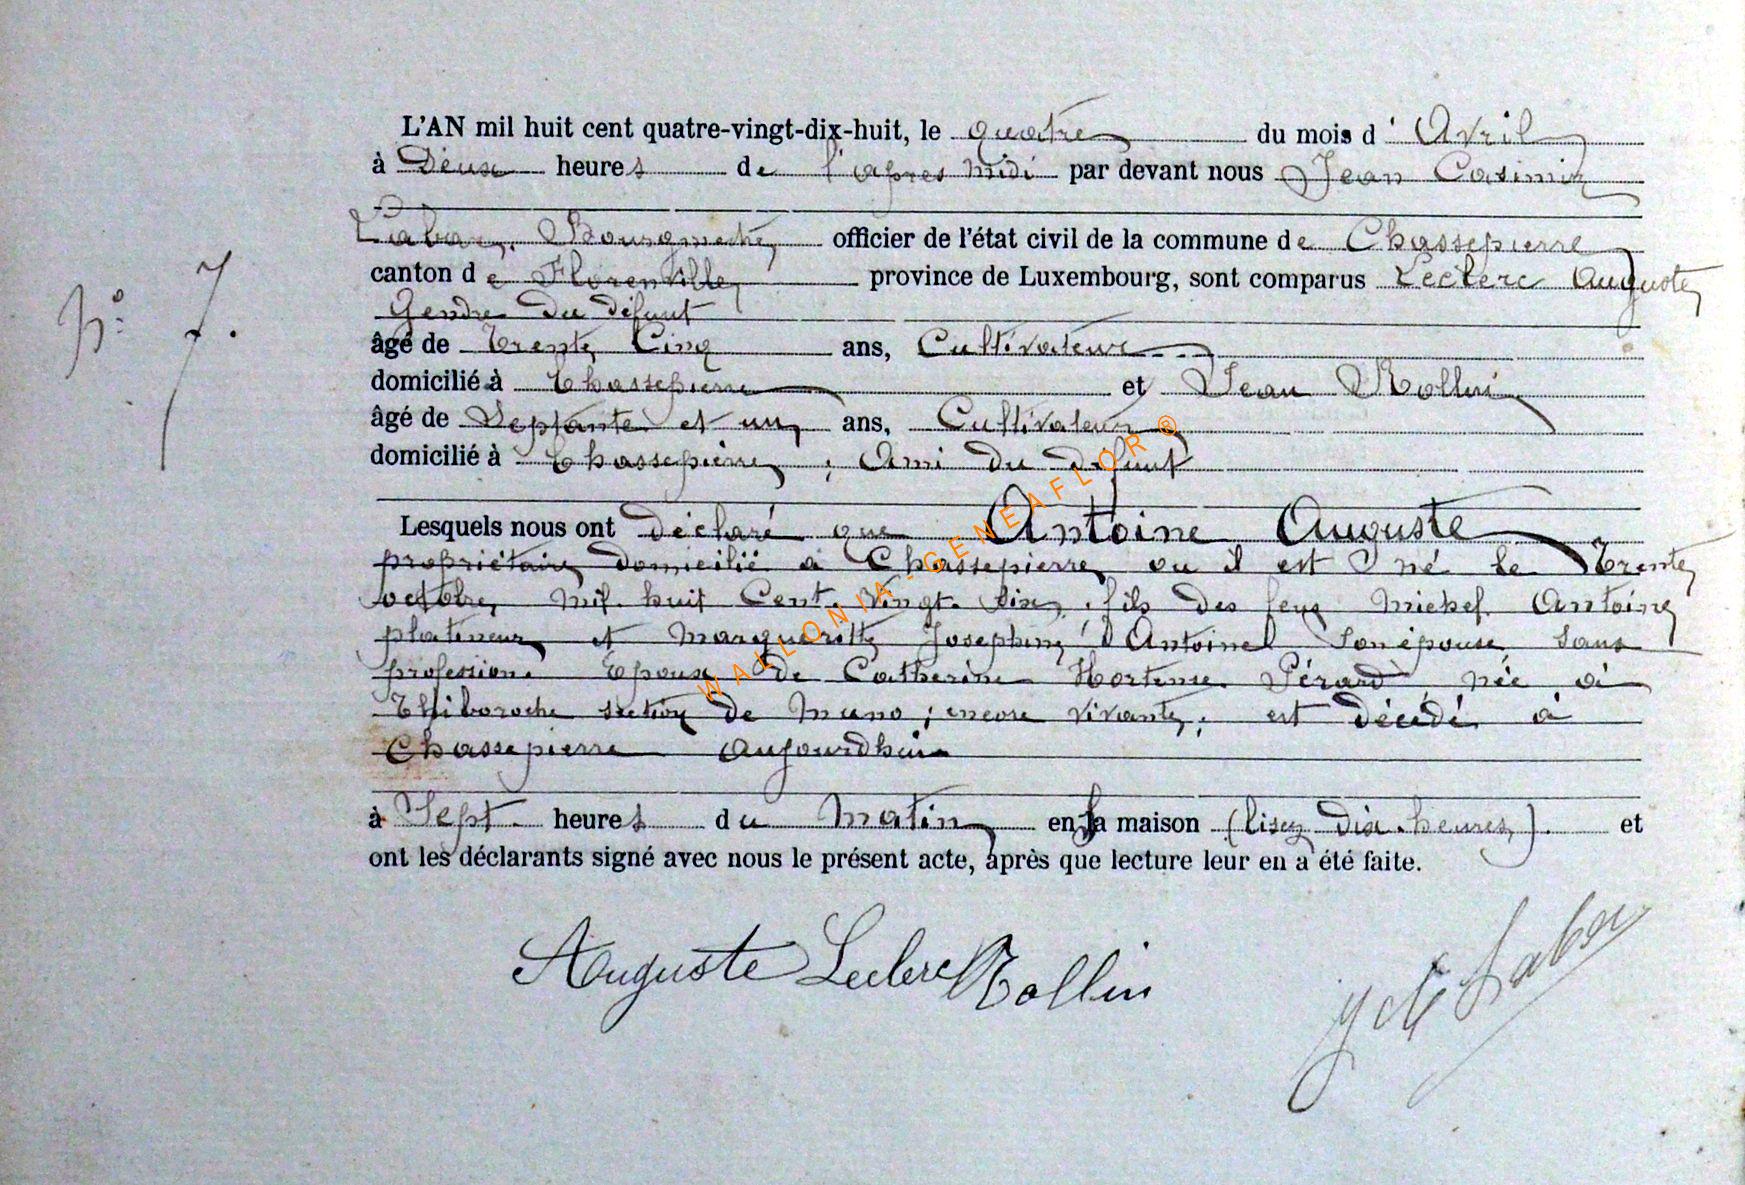 L'AN mil huit cent quatre-vingt-dix-huit, le quatre du mois d' Avril
à Deux heures de l'apres midi par devant nous Jean Casimir
Labar, Bourgmestre, officier de l'état civil de la commune de Chassepierre
canton de Florenville, province de Luxembourg, sont comparus Leclerc Auguste,
Gendre du défunt
N° 7.
âgé de Trente Cinq ans, Cultivateur
domicilié à Chassepierre et Jean Rollin,
âgé de Septante et un, ans, Cultivateur
domicilié à Chassepierre, Ami du défunt
Lesquels nous ont déclaré que Antoine Auguste
propriétaire domicilié à Chassepierre, ou il est né le Trente,
octobre, mil huit Cent. Vingt. Six, fils des feus Michel Antoine
platineur, et Marguerite Josephine, d'Antoine son épouse, sans
profession. Epoux de Catherine Hortense Pérard née à
section de Muno; encore vivante, est décédé à
Chassepierre aujourdhui
à Sept heures du Matin, en sa maison (lisez Dix heures). et
ont les déclarants signé avec nous le présent acte, après que lecture leur en a été faite.
Auguste Leclerc Rollin
WALLONIA-GENEAFLOR ®